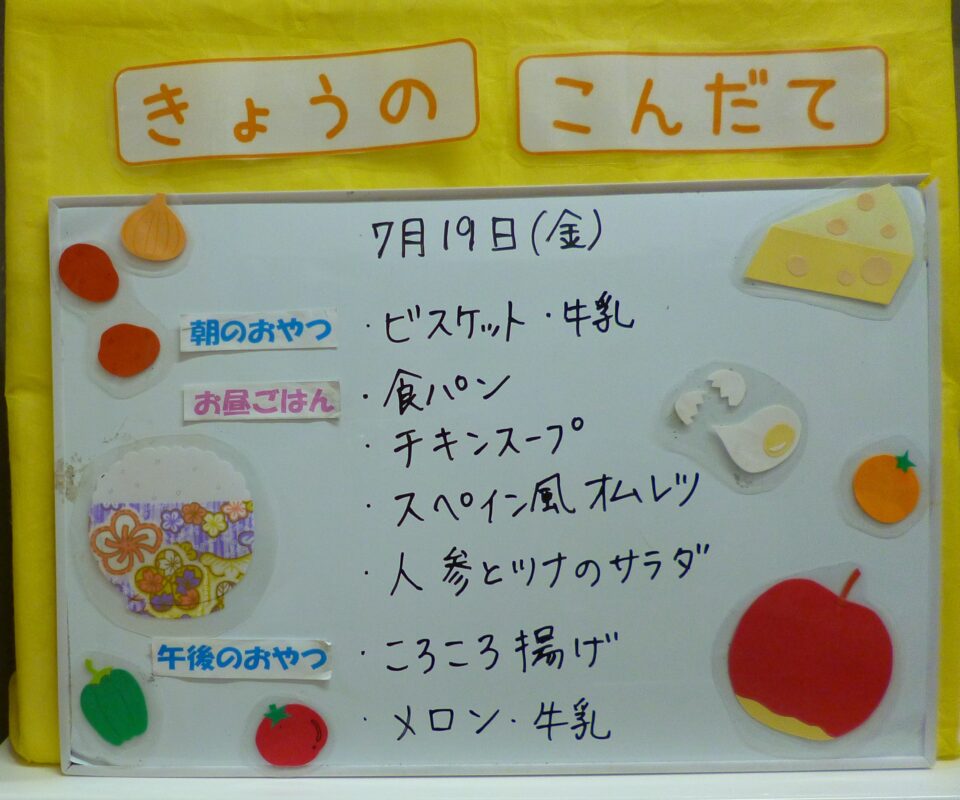 きょうの こんだて
7月19日(金)
朝のおやつ ・ビスケット・牛乳
お昼ごはん ・食パン
・チキンスープ
・スペイン風オムレツ
・人参とツナのサラダ
午後のおやつ ・ころころ揚げ
・メロン・牛乳